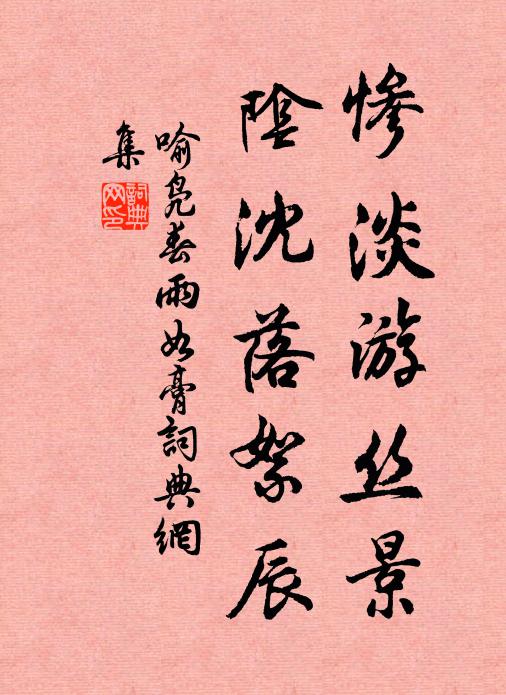 惨淡游丝景
陰沈落絮辰
喻凫春雨如膏詞典網
集
詞典網印